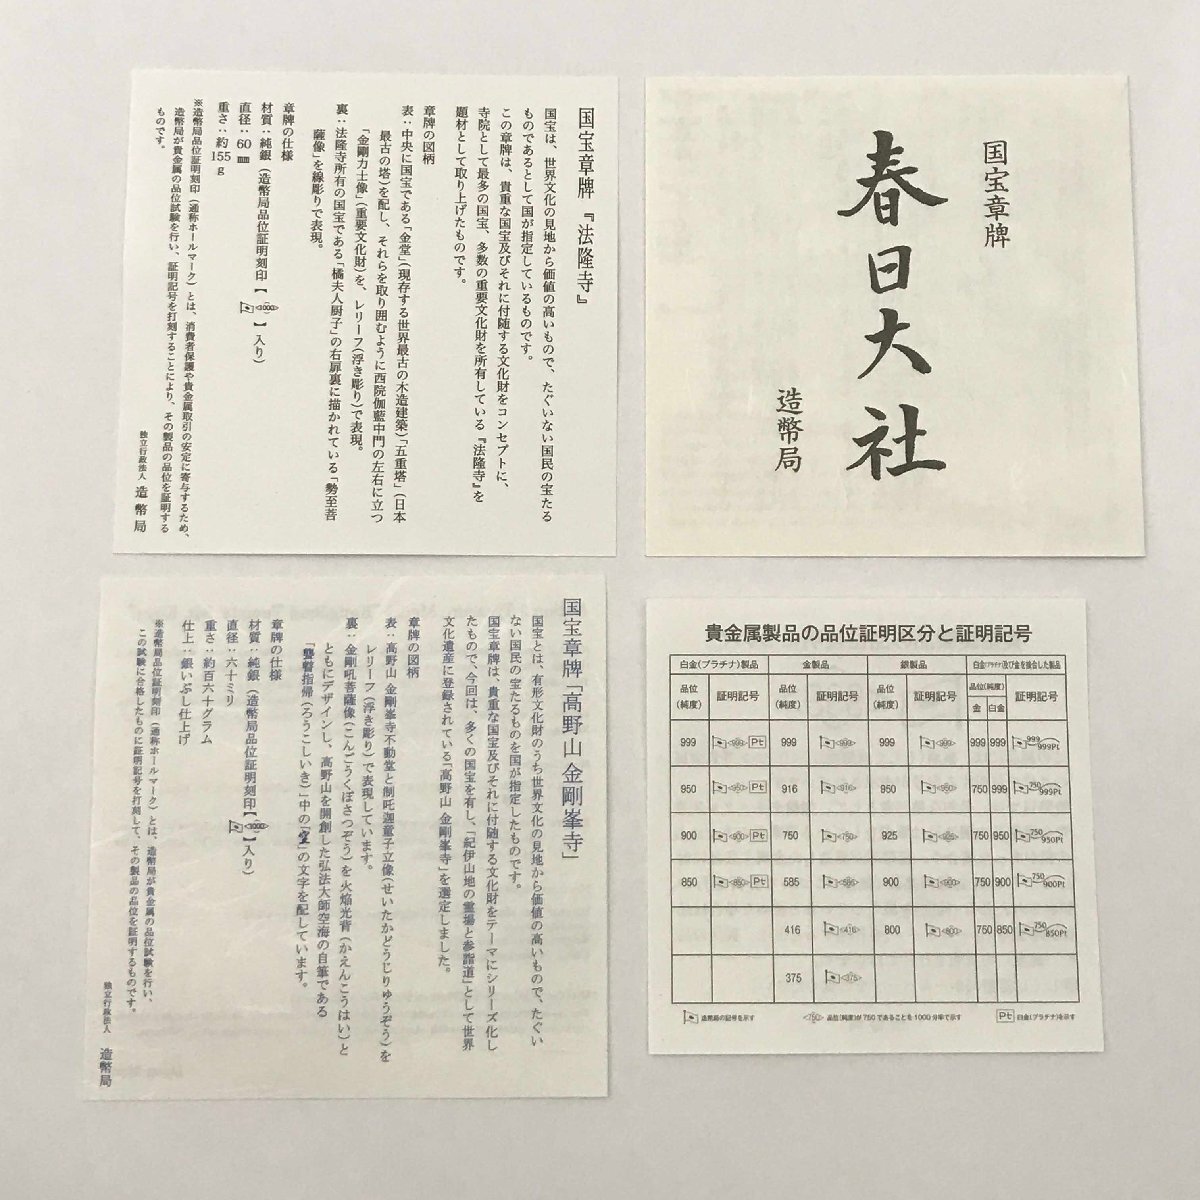 国宝章牌『法隆寺』
国宝は、世界文化の見地から価値の高いもので、たぐいない国民の宝たる
ものであるとして国が指定しているものです。
この章牌は、貴重な国宝及びそれに付随する文化財をコンセプトに、
寺院として最多の国宝、多数の重要文化財を所有している『法隆寺』を
題材として取り上げたものです。
章牌の図柄
表：中央に国宝である「金堂」（現存する世界最古の木造建築）「五重塔」（日本
最古の塔）を配し、それらを取り囲むように西院伽藍中門の左右に立つ
「金剛力士像」（重要文化財）を、レリーフ（浮き彫り）で表現。
裏：法隆寺所有の国宝である「橘夫人厨子」の右扉裏に描かれている「勢至菩
薩像」を線彫りで表現。
章牌の仕様
材質：純銀（造幣局品位証明刻印【1000】入り）
直径：60㎜
重さ：約155g
※造幣局品位証明刻印（通称ホールマーク）とは、消費者保護や貴金属取引の安定に寄与するため、
造幣局が貴金属の品位試験を行い、証明記号を打刻することにより、その製品の品位を証明する
ものです。
独立行政法人 造幣局
国宝章牌
春日大社
造幣局
国宝章牌「高野山 金剛峯寺」
国宝とは、有形文化財のうち世界文化の見地から価値の高いもので、たぐい
ない国民の宝たるものを国が指定したものです。
国宝章牌は、貴重な国宝及びそれに付随する文化財をテーマにシリーズ化し
たもので、今回は、多くの国宝を有し、「紀伊山地の霊場と参詣道」として世界
文化遺産に登録されている「高野山 金剛峯寺」を選定しました。
章牌の図柄
表：高野山 金剛峯寺不動堂と制吒迦童子立像（せいたかどうじりゅうぞう）を
レリーフ（浮き彫り）で表現しています。
裏：金剛吼菩薩像（こんごうくぼさつぞう）を火焔光背（かえんこうはい）と
ともにデザインし、高野山を開創した弘法大師空海の自筆である
「聾瞽指帰（ろうこしいき）」中の「空」の文字を配しています。
章牌の仕様
材質：純銀（造幣局品位証明刻印【1000】入り）
直径：六十ミリ
重さ：約百六十グラム
仕上：銀いぶし仕上げ
※造幣局品位証明刻印（通称ホールマーク）とは、造幣局が貴金属の品位試験を行い、
この試験に合格したものに証明記号を打刻して、その製品の品位を証明するものです。
独立行政法人 造幣局
貴金属製品の品位証明区分と証明記号
白金（プラチナ）製品 金製品 銀製品 白金（プラチナ）及び金を接合した製品
品位（純度） 証明記号 品位（純度） 証明記号 品位（純度） 証明記号 品位（純度） 金 白金 証明記号
999 <999> Pt 999 <999> 999 <999> 999 999 999 999Pt
950 <950> Pt 916 <916> 950 <950> 750 999 750 999Pt
900 <900> Pt 750 <750> 925 <925> 750 950 750 950Pt
850 <850> Pt 585 <585> 900 <900> 750 900 750 900Pt
416 <416> 800 <800> 750 850 750 850Pt
375 <375>
造幣局の記号を示す <750> 品位（純度）が750であることを1000分率で示す Pt 白金（プラチナ）を示す